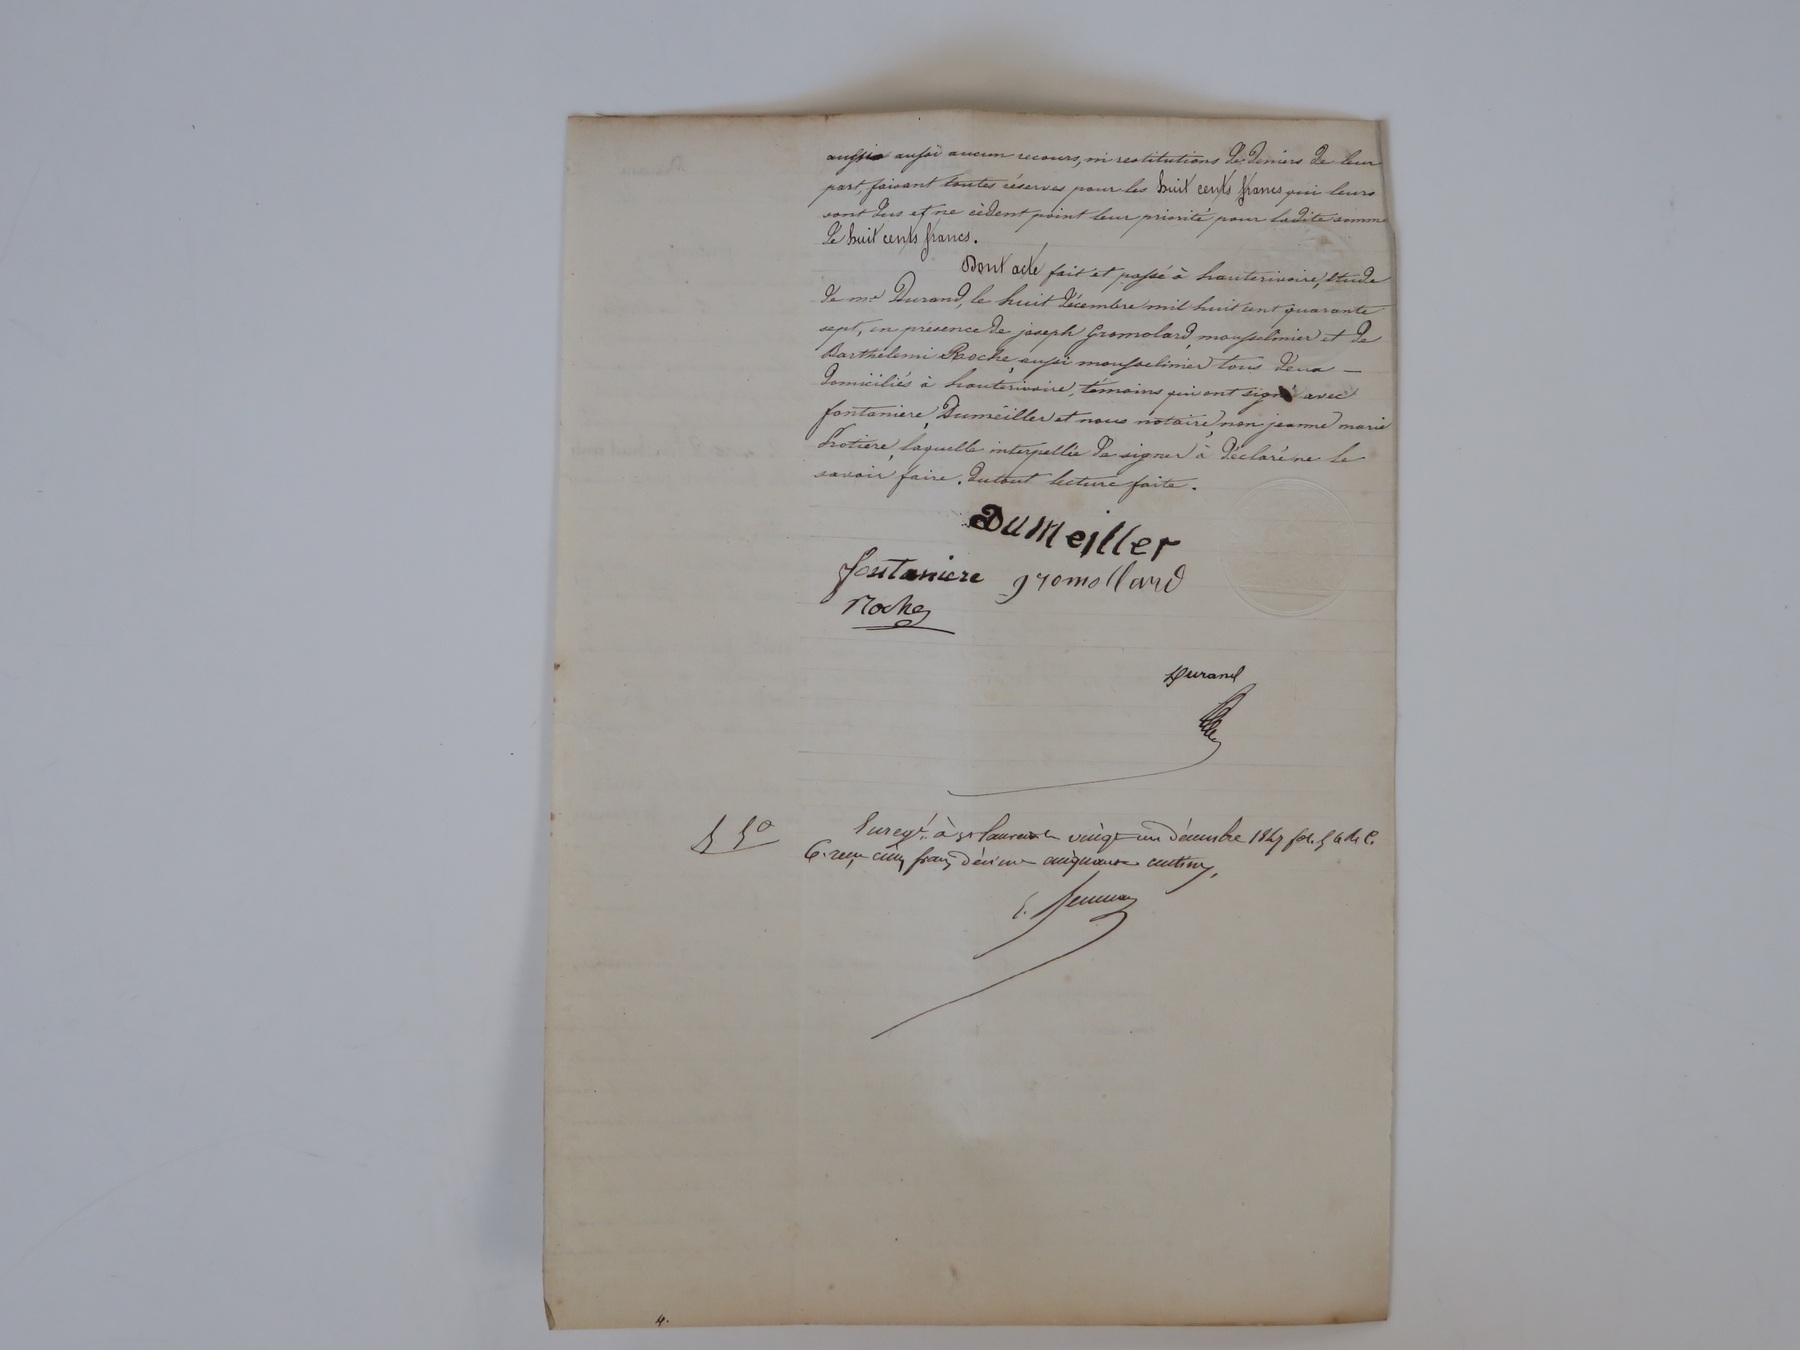 aussi aucun recours, ni restitutions de deniers de leur
part, faisant toutes réserves pour les huit cents francs qui leurs
sont dus et ne cèdent point leur priorité pour ladite somme
de huit cents francs.
Dont acte fait et passé à hauterivoire, étude
de me Durand, le huit décembre mil huit cent quarante
sept, en présence de joseph Gromolard, mousselinier et de
Barthelemi Roche, aussi mousselinier tous deux —
domiciliés à hauterivoire, témoins qui ont signé avec
fontaniere, Dumeiller et nous notaire, non jeanne marie
laquelle interpellée de signer à déclaré ne le
savoir faire. du tout lecture faite.
Dumeiller
fontaniere gromollard
Roche
Durand
5 50
Enregt. à St Laurent le vingt un décembre 1847 fol.
6. reçu cinq francs décime cinquante centimes,
4.